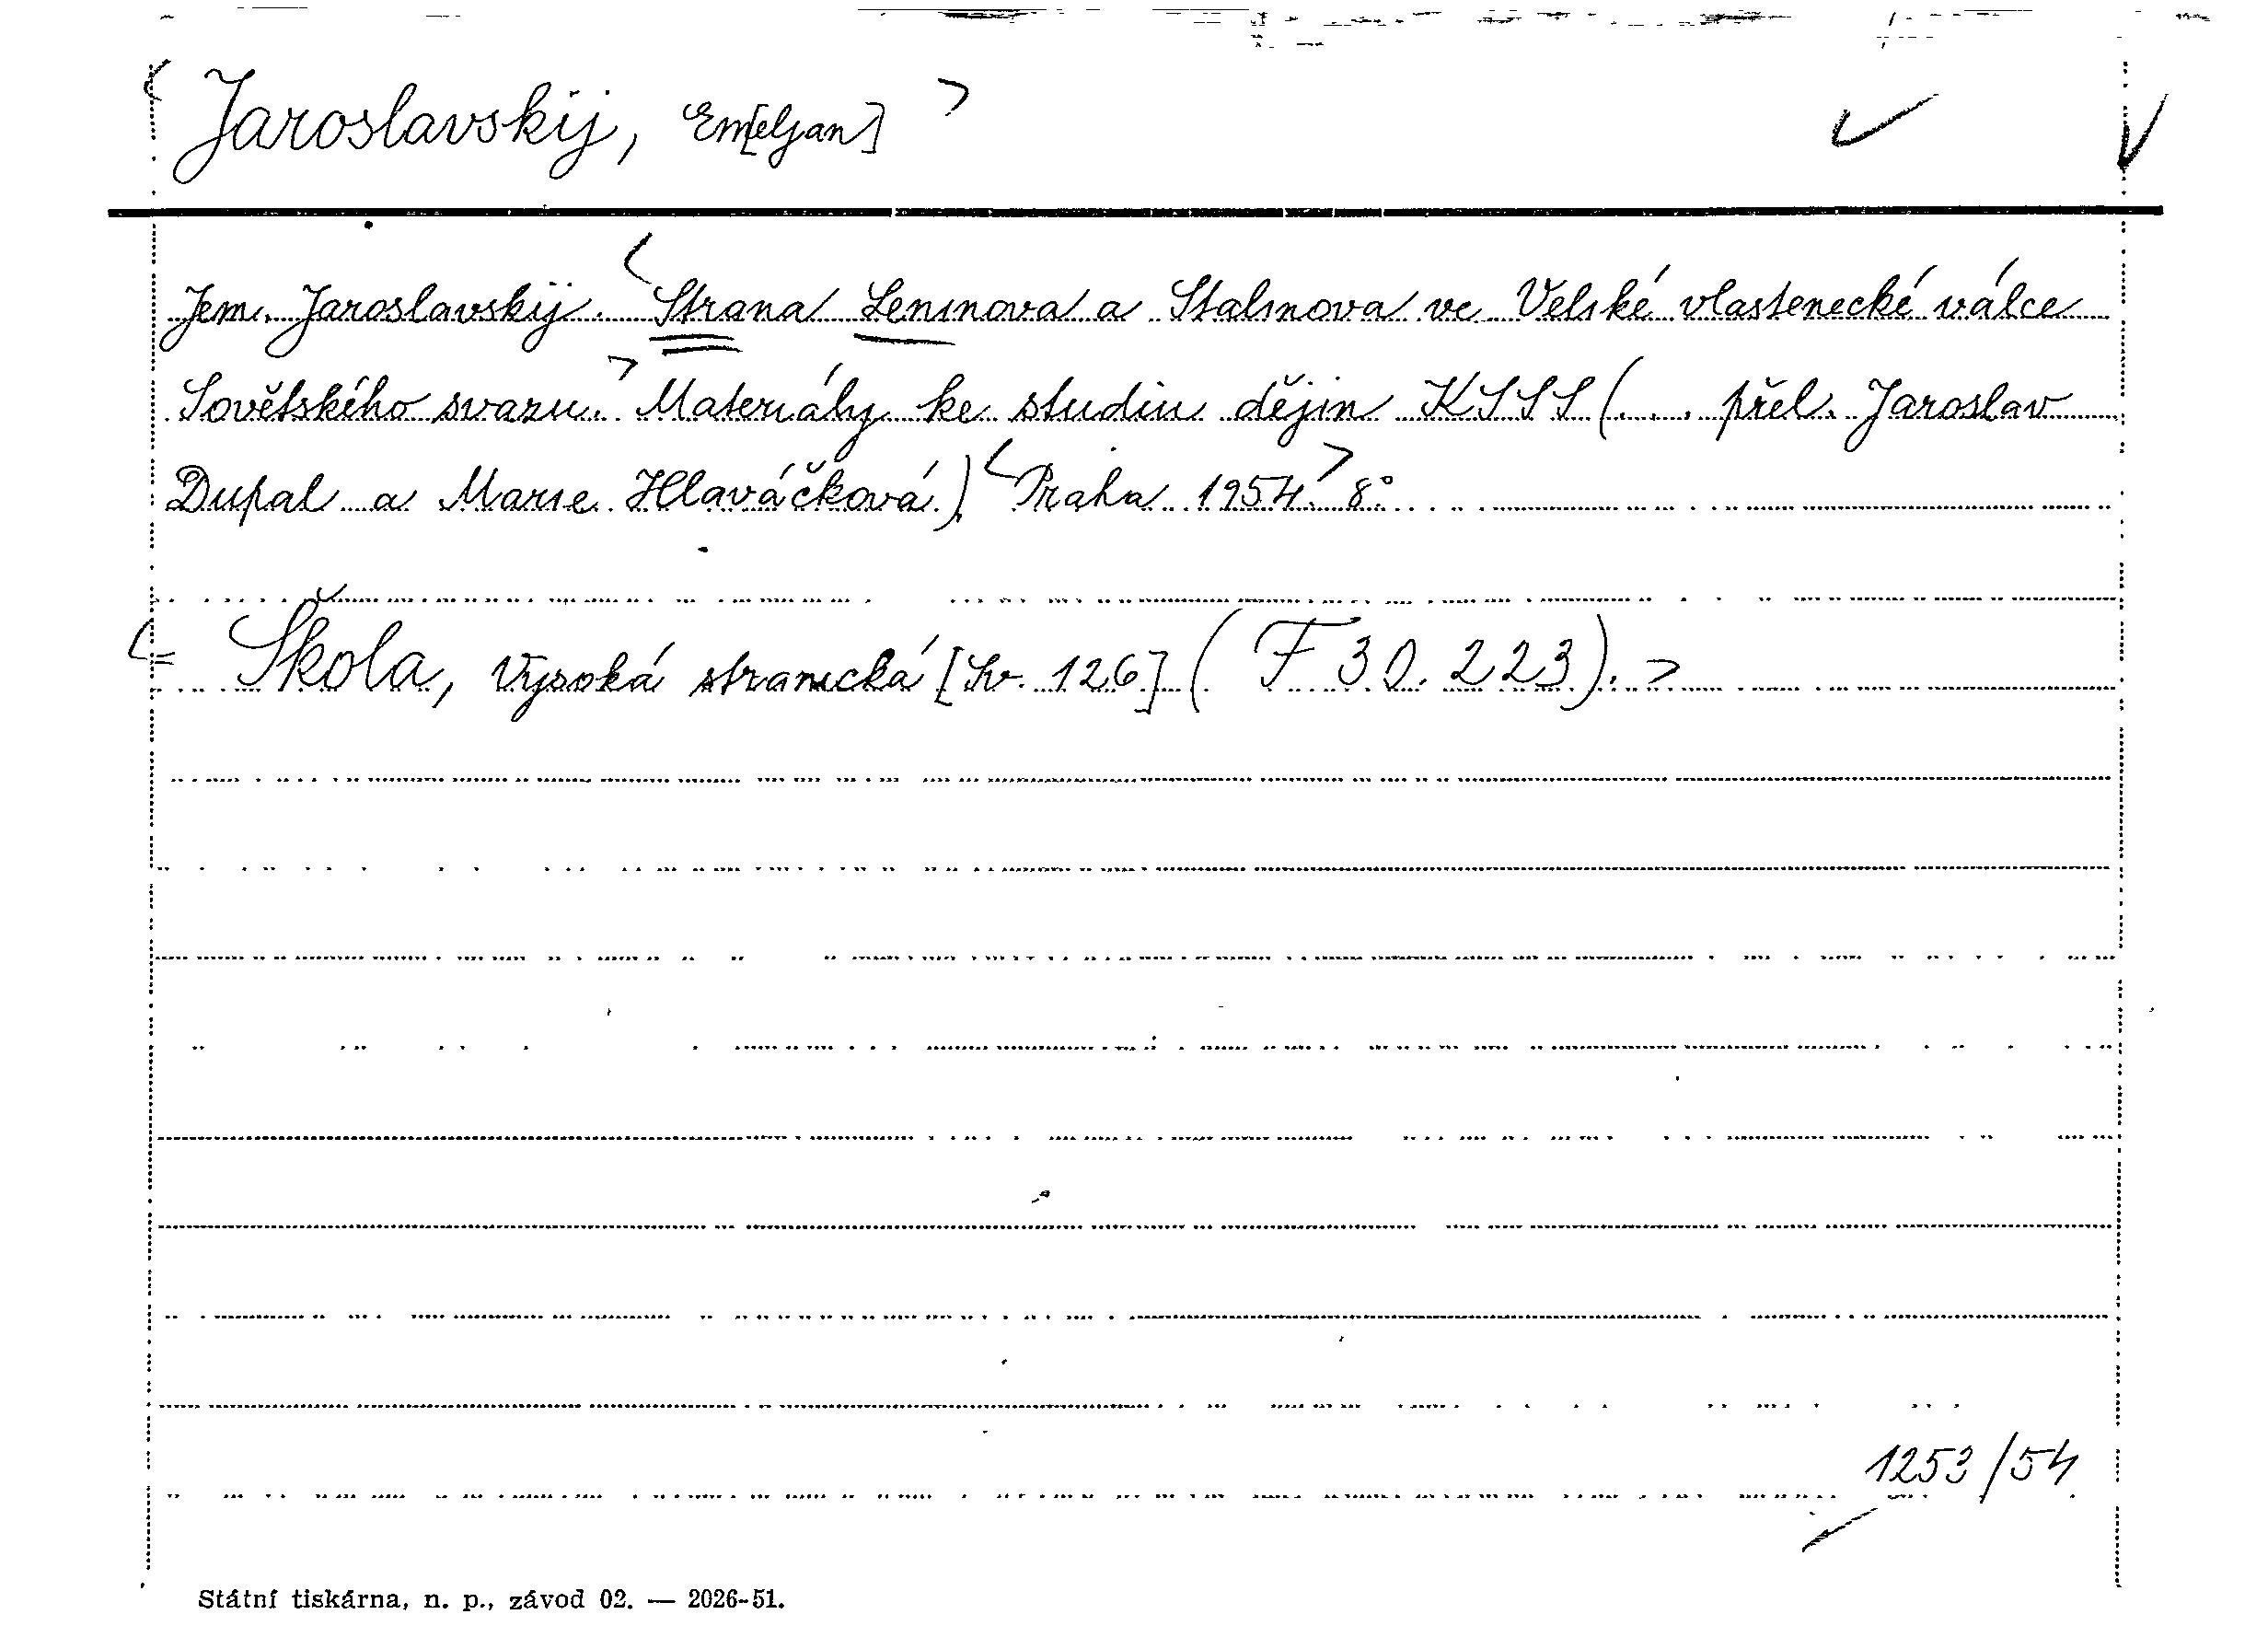 Jaroslavskij, Em[eljan]
Jem. Jaroslavskij. Strana Leninova a Stalinova ve Velské vlastenecké válce
Sovětského svazu. Materiály ke studiu dějin KSSS (... přel. Jaroslav
Dupal a Marie Hlaváčková). Praha 1954. 8°.
= Škola, Vysoká stranická [Sv. 126] (F 30.223).
1253/54
Státní tiskárna, n. p., závod 02. — 2026-51.